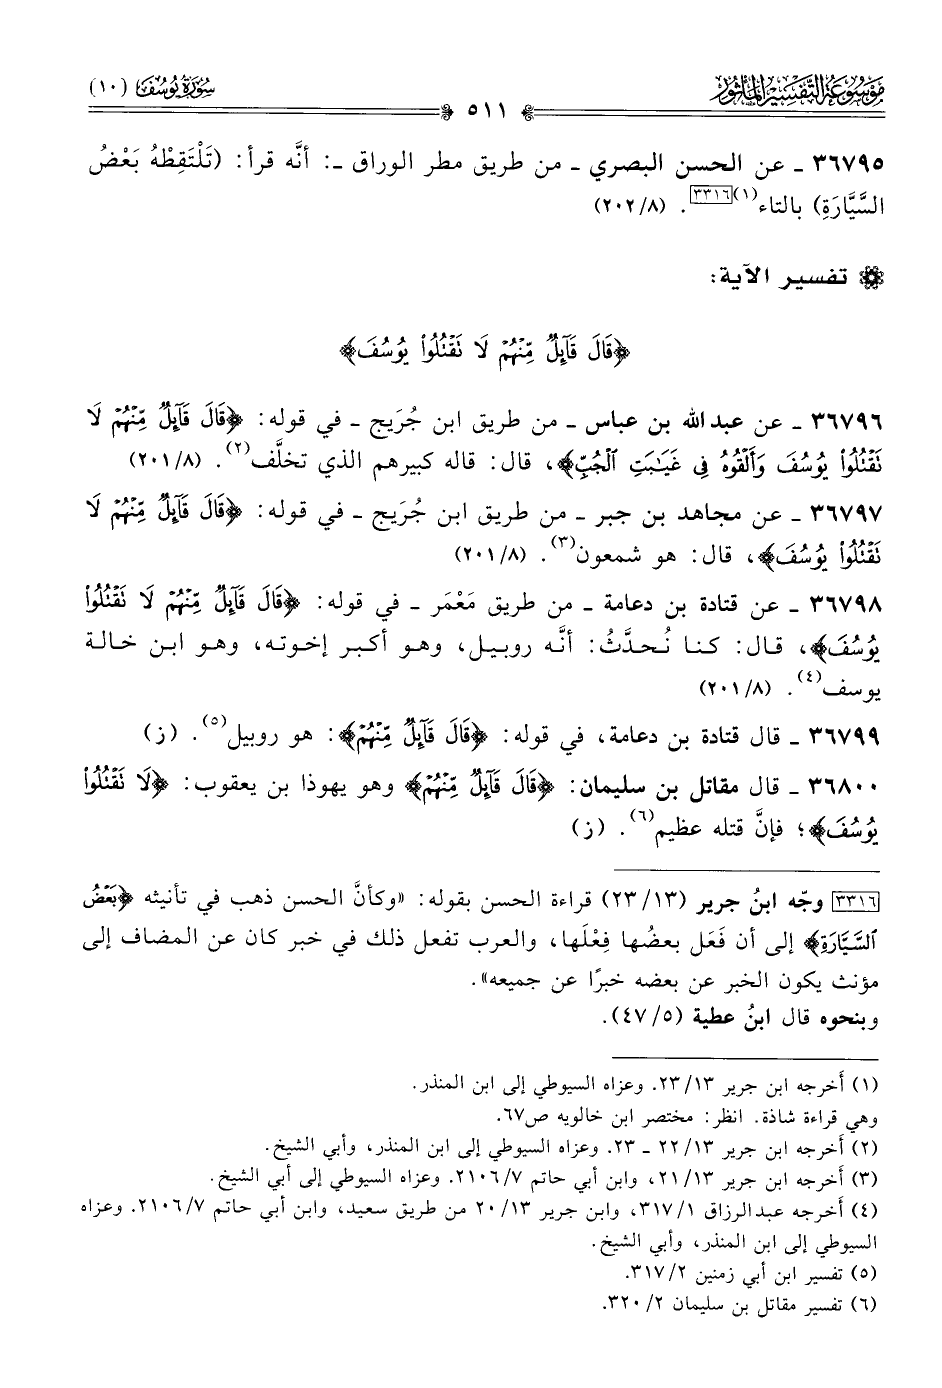 مَوْسُوعَة التَّفْسِيرِ المَأْثُور
سُورَةُ يُوسُفَ (١٠)
٥١١
٣٦٧٩٥ ـ عن الحسن البصري ـ من طريق مطر الوراق ـ: أنَّه قرأ: (تَلْتَقِطْهُ بَعْضُ
السَّيَّارَةِ) بالتاء(١)[٣٣١٦]. (٢٠٢/٨)
تفسير الآية:
﴿قَالَ قَآئِلٌ مِّنْهُمْ لَا تَقْتُلُواْ يُوسُفَ﴾
٣٦٧٩٦ ـ عن عبدالله بن عباس ـ من طريق ابن جُرَيج ـ في قوله: ﴿قَالَ قَآئِلٌ مِّنْهُمْ لَا
تَقْتُلُواْ يُوسُفَ وَأَلْقُوهُ فِى غَيَٰبَتِ ٱلْجُبِّ﴾، قال: قاله كبيرهم الذي تخلَّف(٢). (٢٠١/٨)
٣٦٧٩٧ ـ عن مجاهد بن جبر ـ من طريق ابن جُرَيج ـ في قوله: ﴿قَالَ قَآئِلٌ مِّنْهُمْ لَا
تَقْتُلُواْ يُوسُفَ﴾، قال: هو شمعون(٣). (٢٠١/٨)
٣٦٧٩٨ ـ عن قتادة بن دعامة ـ من طريق مَعْمَر ـ في قوله: ﴿قَالَ قَآئِلٌ مِّنْهُمْ لَا تَقْتُلُواْ
يُوسُفَ﴾، قال: كنا نُحدَّثُ: أنَّه روبيل، وهو أكبر إخوته، وهو ابن خالة
يوسف(٤). (٢٠١/٨)
٣٦٧٩٩ ـ قال قتادة بن دعامة، في قوله: ﴿قَالَ قَآئِلٌ مِّنْهُمْ﴾: هو روبيل(٥). (ز)
٣٦٨٠٠ ـ قال مقاتل بن سليمان: ﴿قَالَ قَآئِلٌ مِّنْهُمْ﴾ وهو يهوذا بن يعقوب: ﴿لَا تَقْتُلُواْ
يُوسُفَ﴾؛ فإنَّ قتله عظيم(٦). (ز)
[٣٣١٦] وجّه ابنُ جرير (٢٣/١٣) قراءة الحسن بقوله: «وكأنَّ الحسن ذهب في تأنيثه ﴿بَعْضُ
ٱلسَّيَّارَةِ﴾ إلى أن فَعَل بعضُها فِعْلَها، والعرب تفعل ذلك في خبر كان عن المضاف إلى
مؤنث يكون الخبر عن بعضه خبرًا عن جميعه».
وبنحوه قال ابنُ عطية (٤٧/٥).
(١) أخرجه ابن جرير ٢٣/١٣. وعزاه السيوطي إلى ابن المنذر.
وهي قراءة شاذة. انظر: مختصر ابن خالويه ص٦٧.
(٢) أخرجه ابن جرير ٢٢/١٣ ـ ٢٣. وعزاه السيوطي إلى ابن المنذر، وأبي الشيخ.
(٣) أخرجه ابن جرير ٢١/١٣، وابن أبي حاتم ٢١٠٦/٧. وعزاه السيوطي إلى أبي الشيخ.
(٤) أخرجه عبدالرزاق ٣١٧/١، وابن جرير ٢٠/١٣ من طريق سعيد، وابن أبي حاتم ٢١٠٦/٧. وعزاه
السيوطي إلى ابن المنذر، وأبي الشيخ.
(٥) تفسير ابن أبي زمنين ٣١٧/٢.
(٦) تفسير مقاتل بن سليمان ٣٢٠/٢.